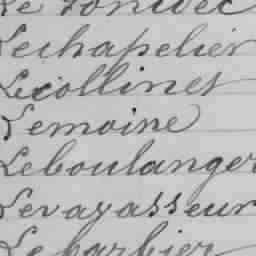 Lechapelier
Lecollinet
Lemoine
Leboulanger
Levavasseur
Lebarbier